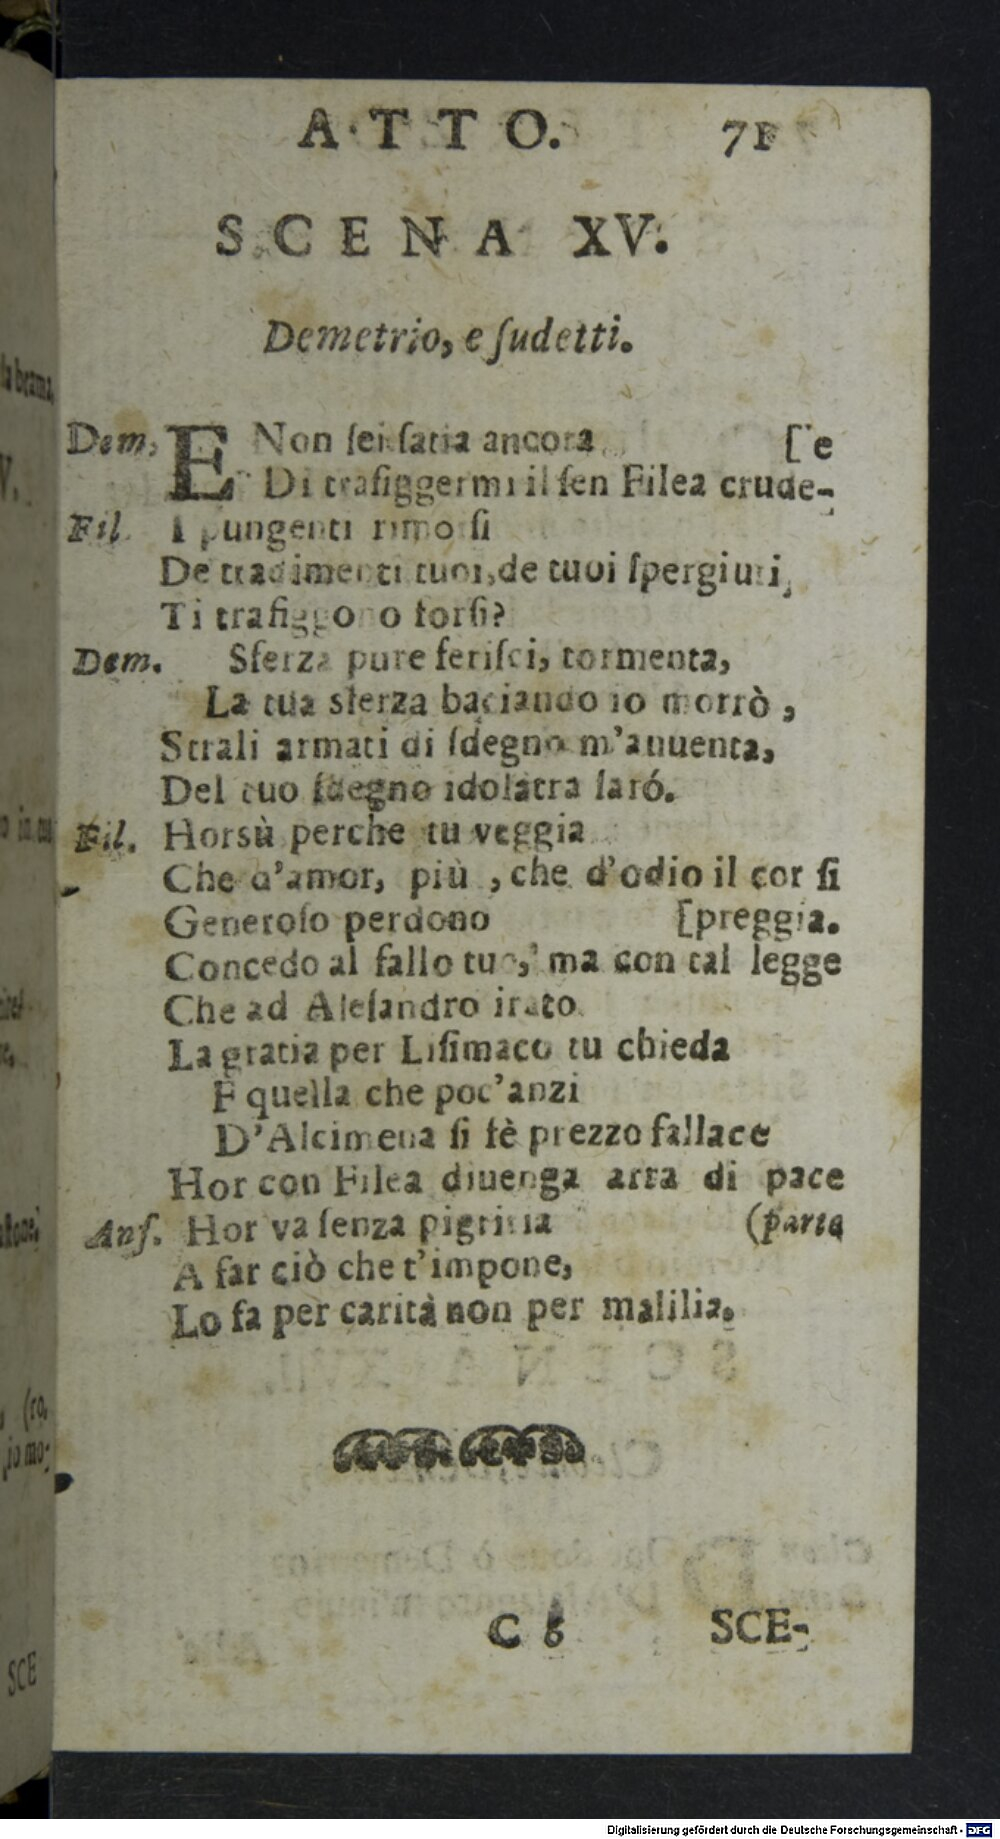 ATTO. 71
SCENA XV.
Demetrio, e ſudetti.
Dem. E Non ſei ſatia ancora [le
Di trafiggermi il ſen Filea crude-
Fil. I pungenti rimorſi
De tradimenti tuoi, de tuoi ſpergiuri,
Ti trafiggono forſi?
Dem. Sferza pure feriſci, tormenta,
La tua sferza baciando io morrò,
Strali armati di ſdegno m'auuenta,
Del tuo ſdegno idolatra ſaró.
Fil. Horsù perche tu veggia
Che d'amor, più, che d'odio il cor ſi
Generoſo perdono [preggia.
Concedo al fallo tuo, ma con tal legge
Che ad Aleſandro irato
La gratia per Liſimaco tu chieda
E quella che poc'anzi
D'Alcimena ſi fè prezzo fallace
Hor con Filea diuenga arra di pace
Anſ. Hor va ſenza pigritia (parte
A far ciò che t'impone,
Lo fa per carità non per malilia.
C 6 SCE-
la brama,
V.
(ro.
SCE
Digitalisierung gefördert durch die Deutsche Forschungsgemeinschaft - DFG